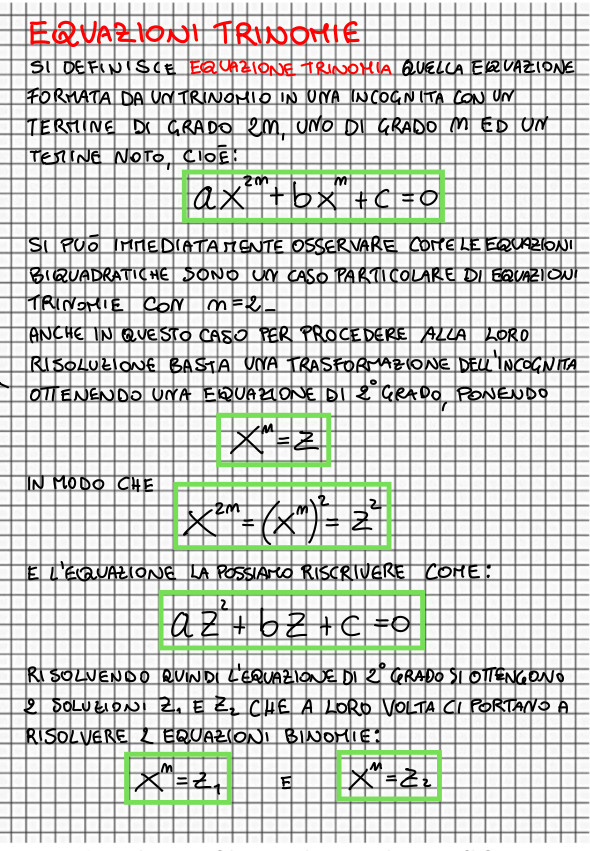 EQUAZIONI TRINOMIE
SI DEFINISCE EQUAZIONE TRINOMIA QUELLA EQUAZIONE
FORMATA DA UN TRINOMIO IN UNA INCOGNITA CON UN
TERMINE DI GRADO 2M, UNO DI GRADO M ED UN
TERMINE NOTO, CIOÈ:
ax²ᵐ + bxᵐ + c = 0
SI PUÒ IMMEDIATAMENTE OSSERVARE COME LE EQUAZIONI
BIQUADRATICHE SONO UN CASO PARTICOLARE DI EQUAZIONI
TRINOMIE CON m=2_
ANCHE IN QUESTO CASO PER PROCEDERE ALLA LORO
RISOLUZIONE BASTA UNA TRASFORMAZIONE DELL'INCOGNITA
OTTENENDO UNA EQUAZIONE DI 2° GRADO, PONENDO
Xᵐ = Z
IN MODO CHE
X²ᵐ = (xᵐ)² = Z²
E L'EQUAZIONE LA POSSIAMO RISCRIVERE COME:
aZ² + bZ + C = 0
RISOLVENDO QUINDI L'EQUAZIONE DI 2° GRADO SI OTTENGONO
2 SOLUZIONI Z₁ E Z₂ CHE A LORO VOLTA CI PORTANO A
RISOLVERE 2 EQUAZIONI BINOMIE:
Xᵐ = Z₁ E Xᵐ = Z₂